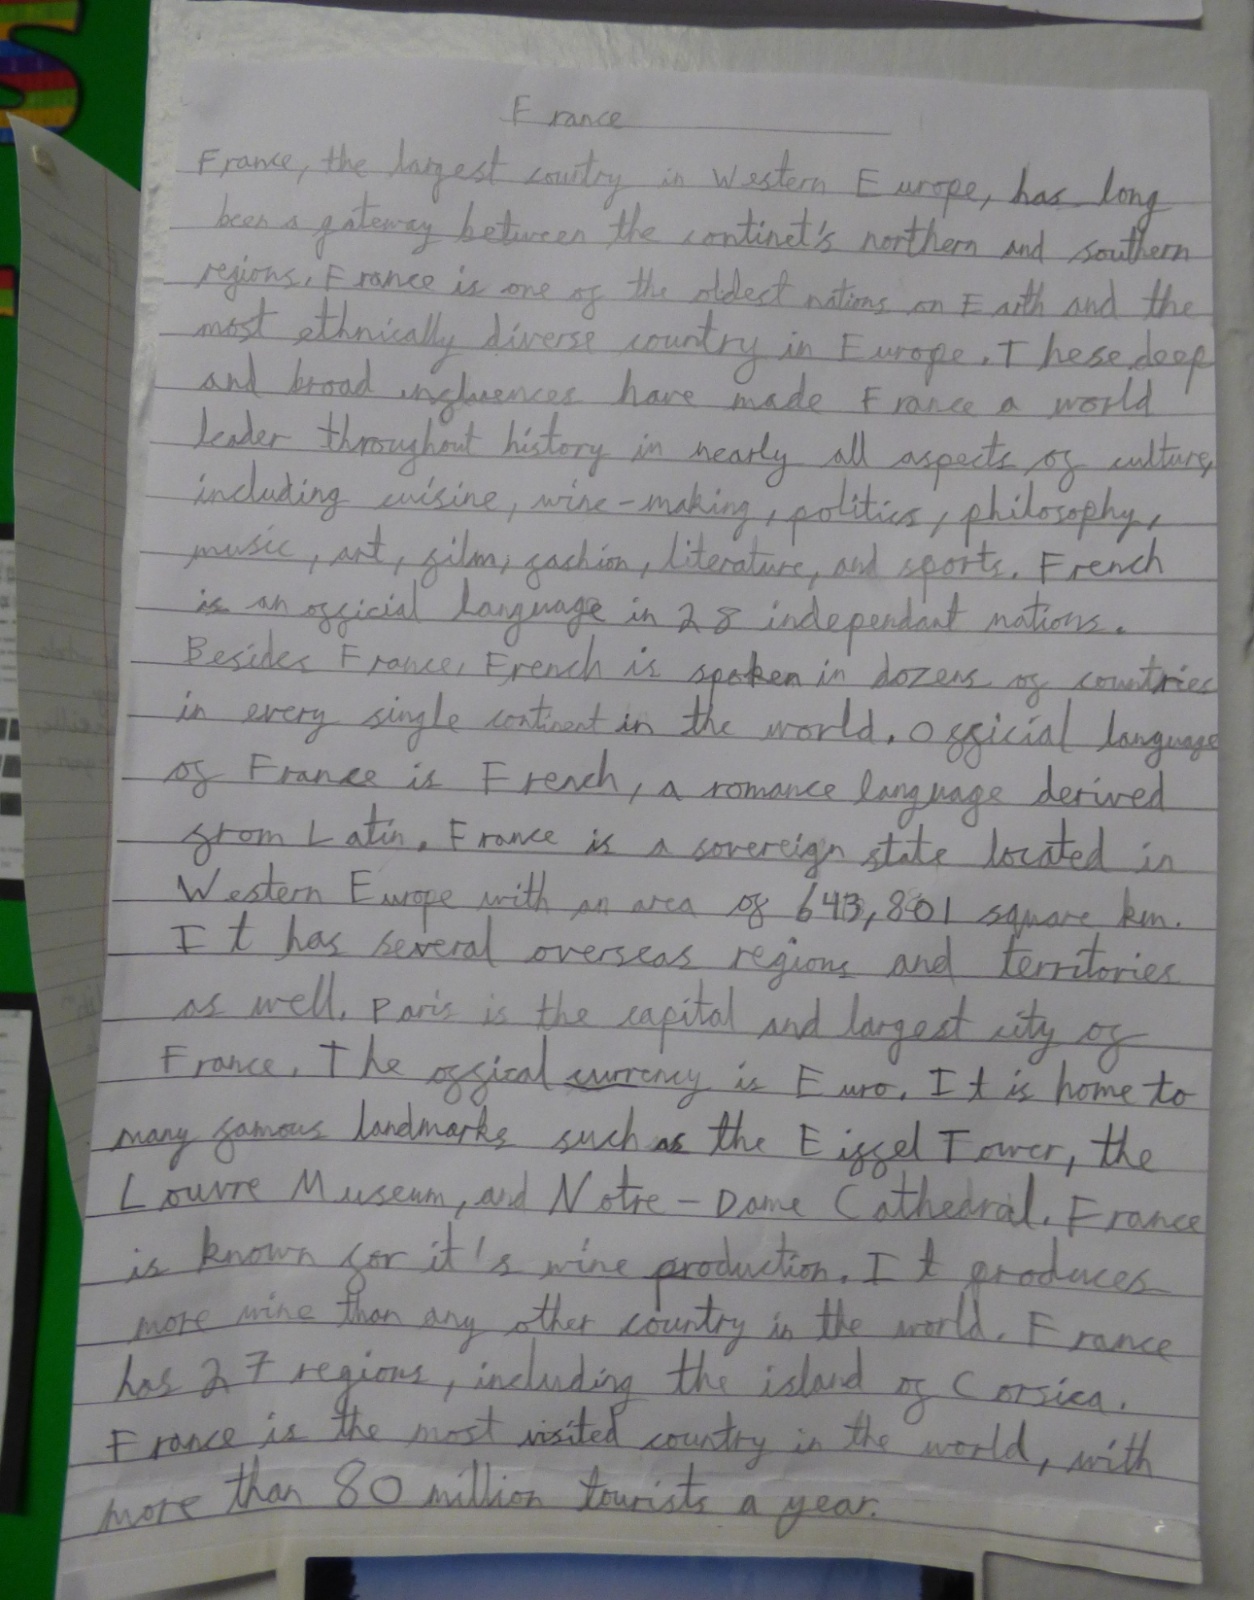 France
France, the largest country in Western Europe, has long
been a gateway between the continet's northern and southern
regions. France is one of the oldest nations on Earth and the
most ethnically diverse country in Europe. These deep
and broad influences have made France a world
leader throughout history in nearly all aspects of culture,
including cuisine, wine-making, politics, philosophy,
music, art, film, fashion, literature, and sports. French
is an official language in 28 independant nations.
Besides France, French is spoken in dozens of countries
in every single continent in the world. Official language
of France is French, a romance language derived
from Latin. France is a sovereign state located in
Western Europe with an area of 643,801 square km.
It has several overseas regions and territories
as well. Paris is the capital and largest city of
France. The offical currency is Euro. It is home to
many famous landmarks such as the Eiffel Tower, the
Louvre Museum, and Notre-Dame Cathedral. France
is known for it's wine production. It produces
more wine than any other country in the world. France
has 27 regions, including the island of Corsica.
France is the most visited country in the world, with
more than 80 million tourists a year.